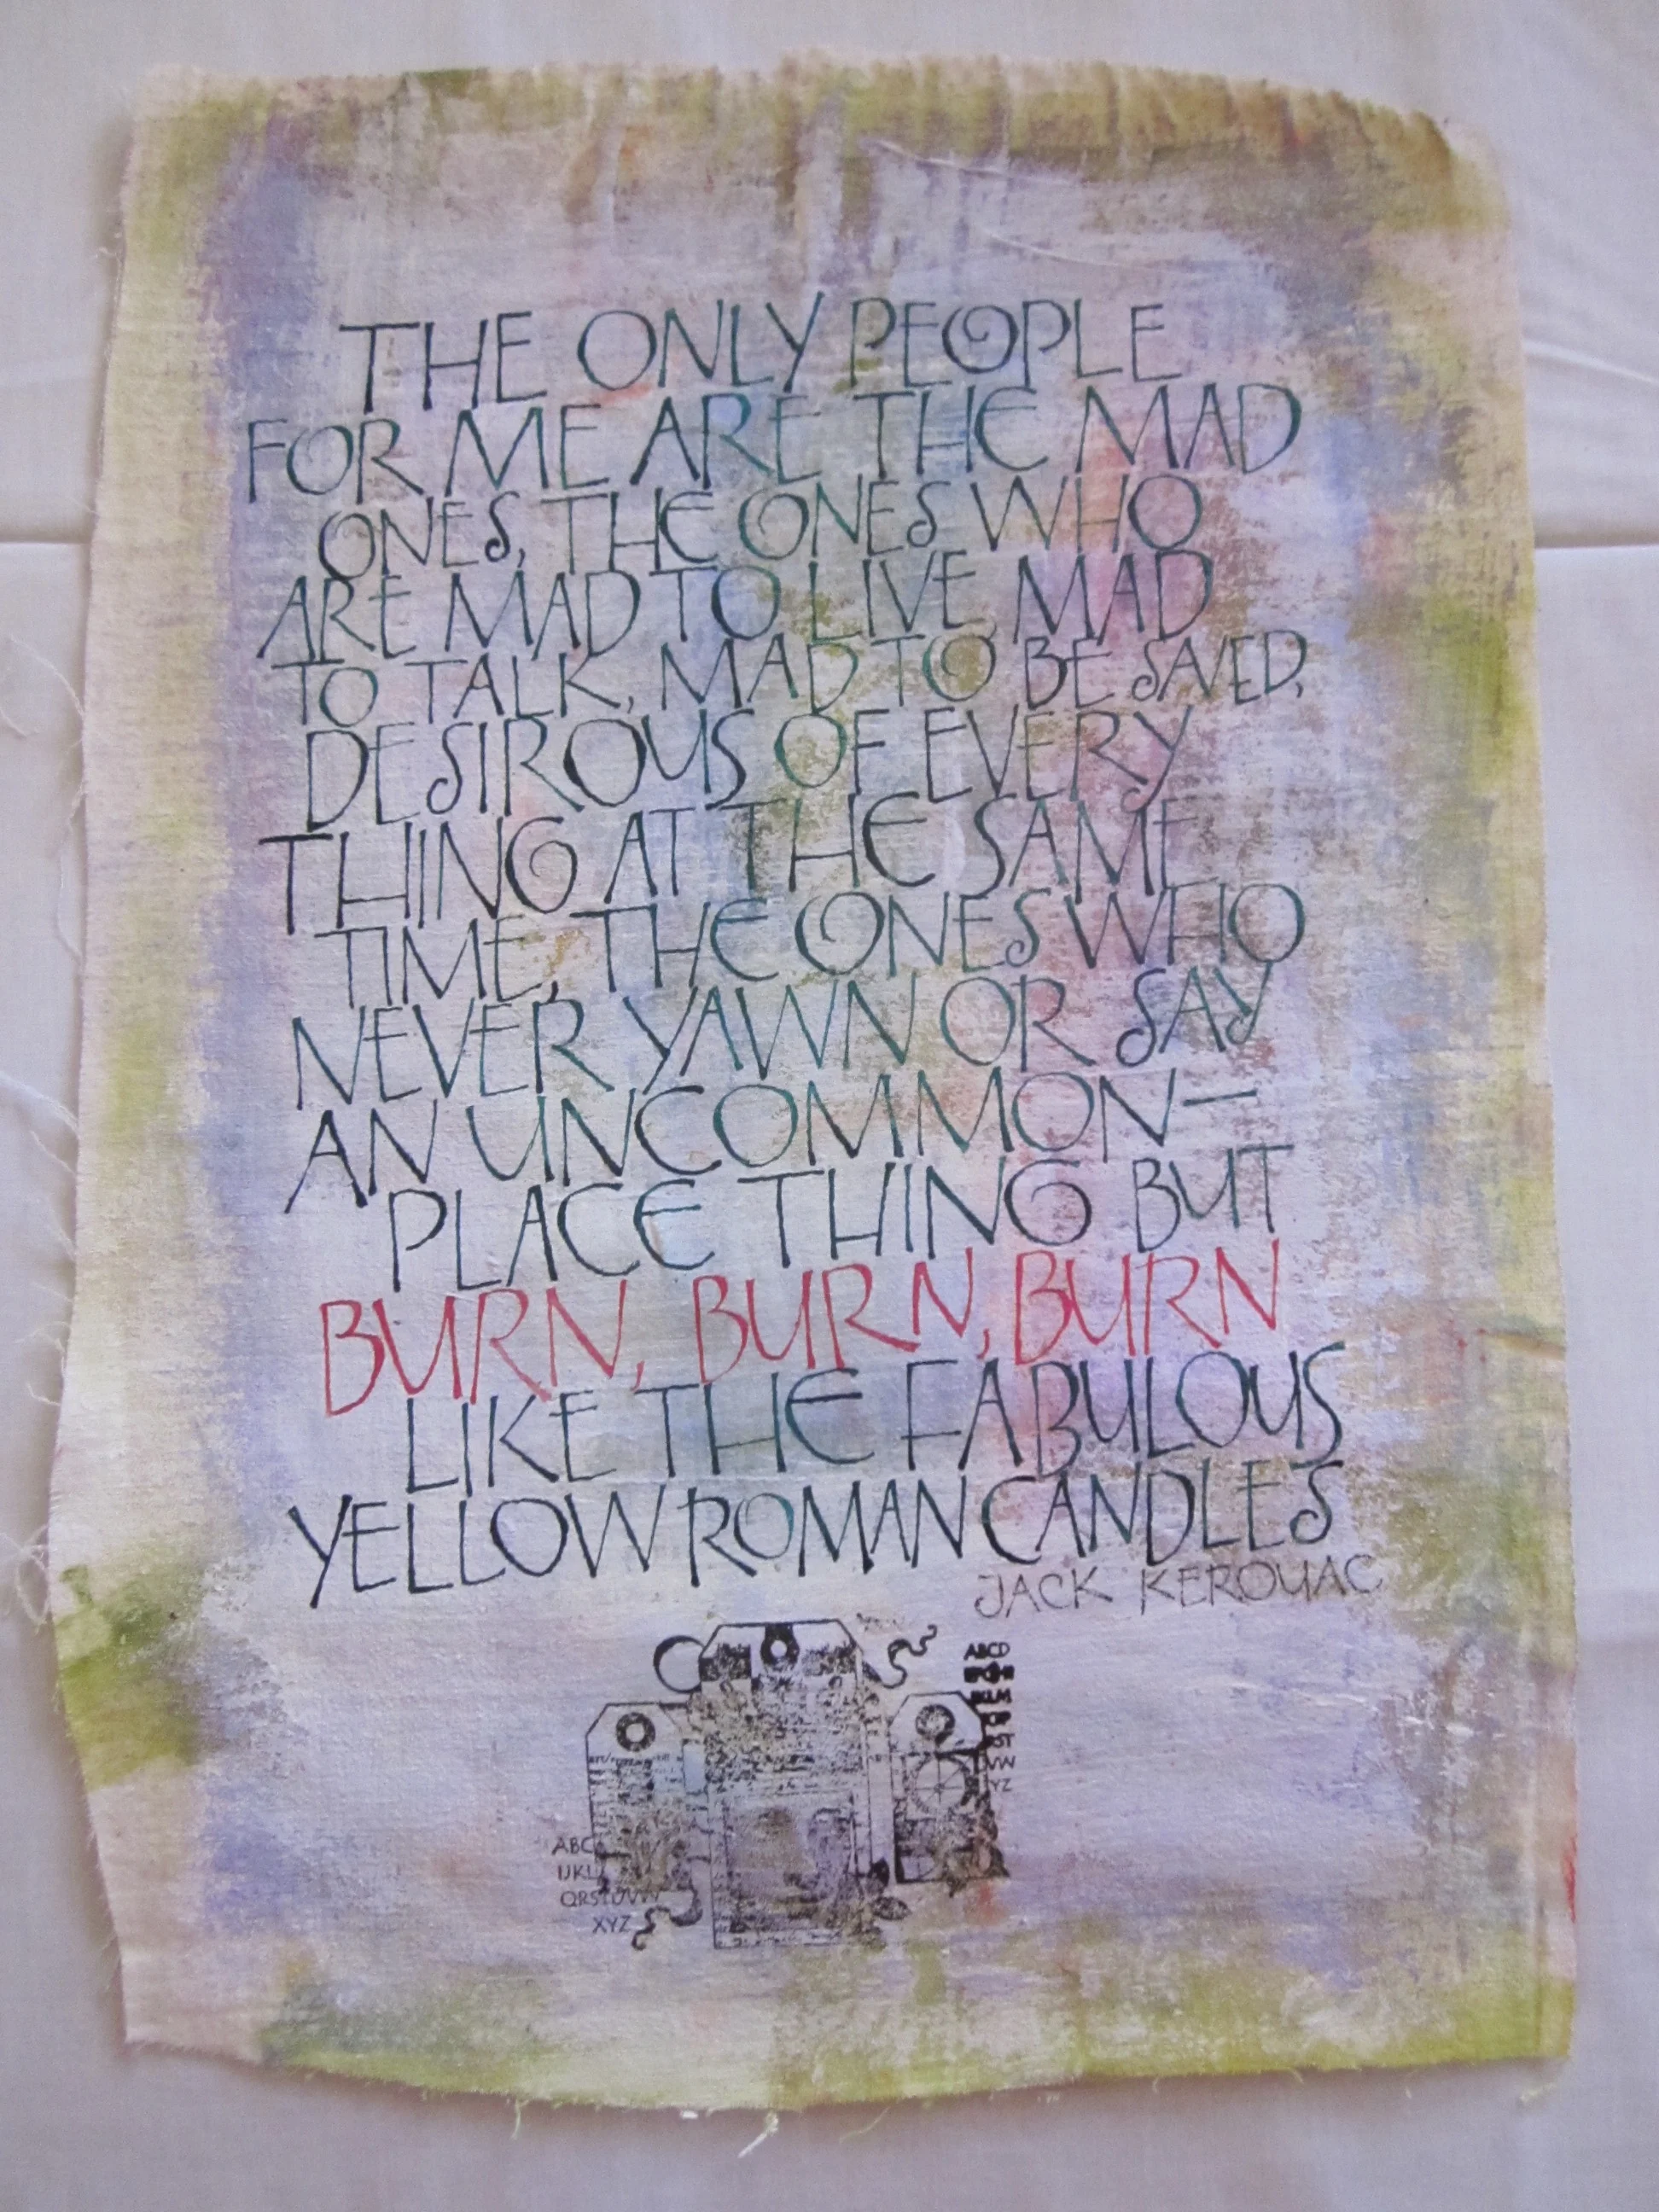 THE ONLY PEOPLE
FOR ME ARE THE MAD
ONES, THE ONES WHO
ARE MAD TO LIVE, MAD
TO TALK, MAD TO BE SAVED,
DESIROUS OF EVERY
THING AT THE SAME
TIME, THE ONES WHO
NEVER YAWN OR SAY
AN UNCOMMON—
PLACE THING BUT
BURN, BURN, BURN
LIKE THE FABULOUS
YELLOW ROMAN CANDLES
JACK KEROUAC
ABCD
ABC
IJKL
QRSTUVW
XYZ